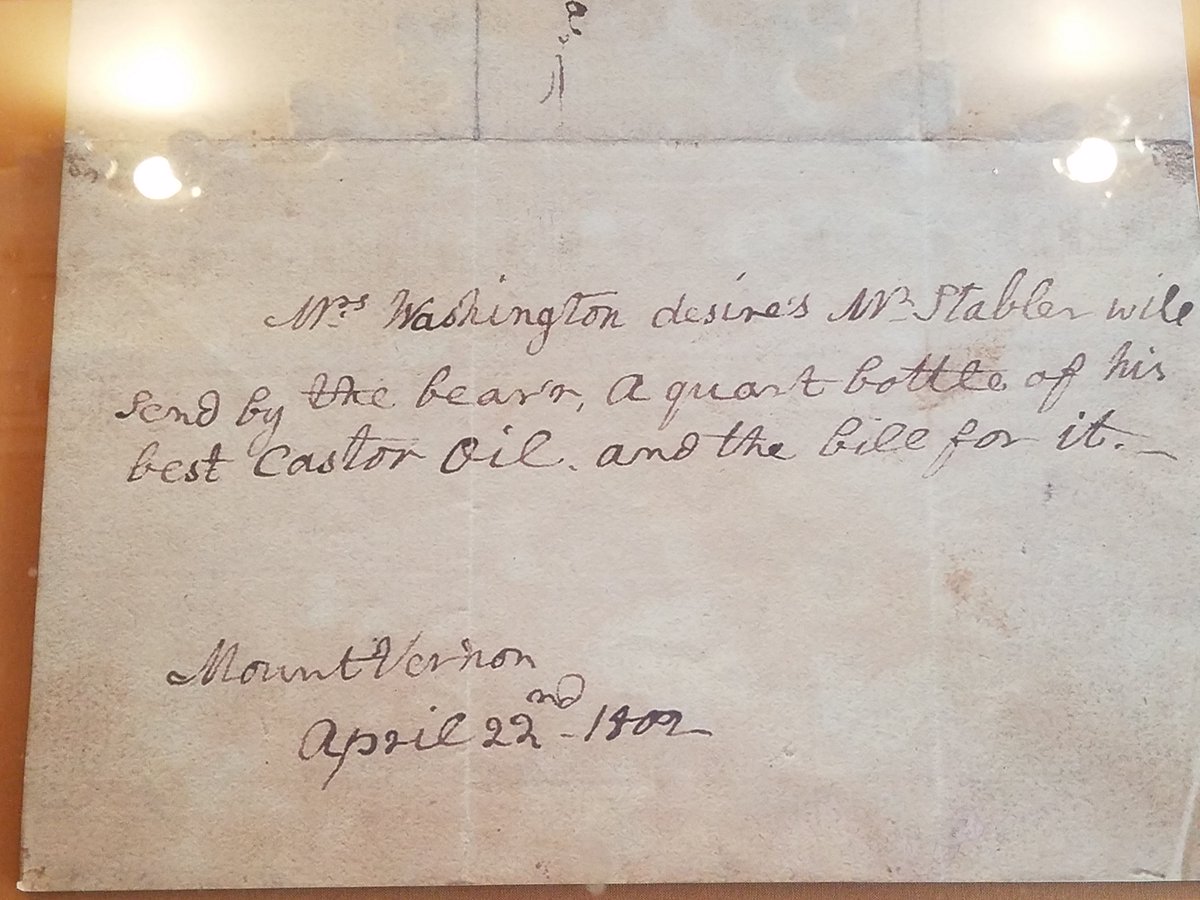 Mrs Washington desire's Mr Stabler will
send by the bear'r, A quart bottle of his
best Castor Oil. and the bill for it.—
Mount Vernon
April 22nd - 1802